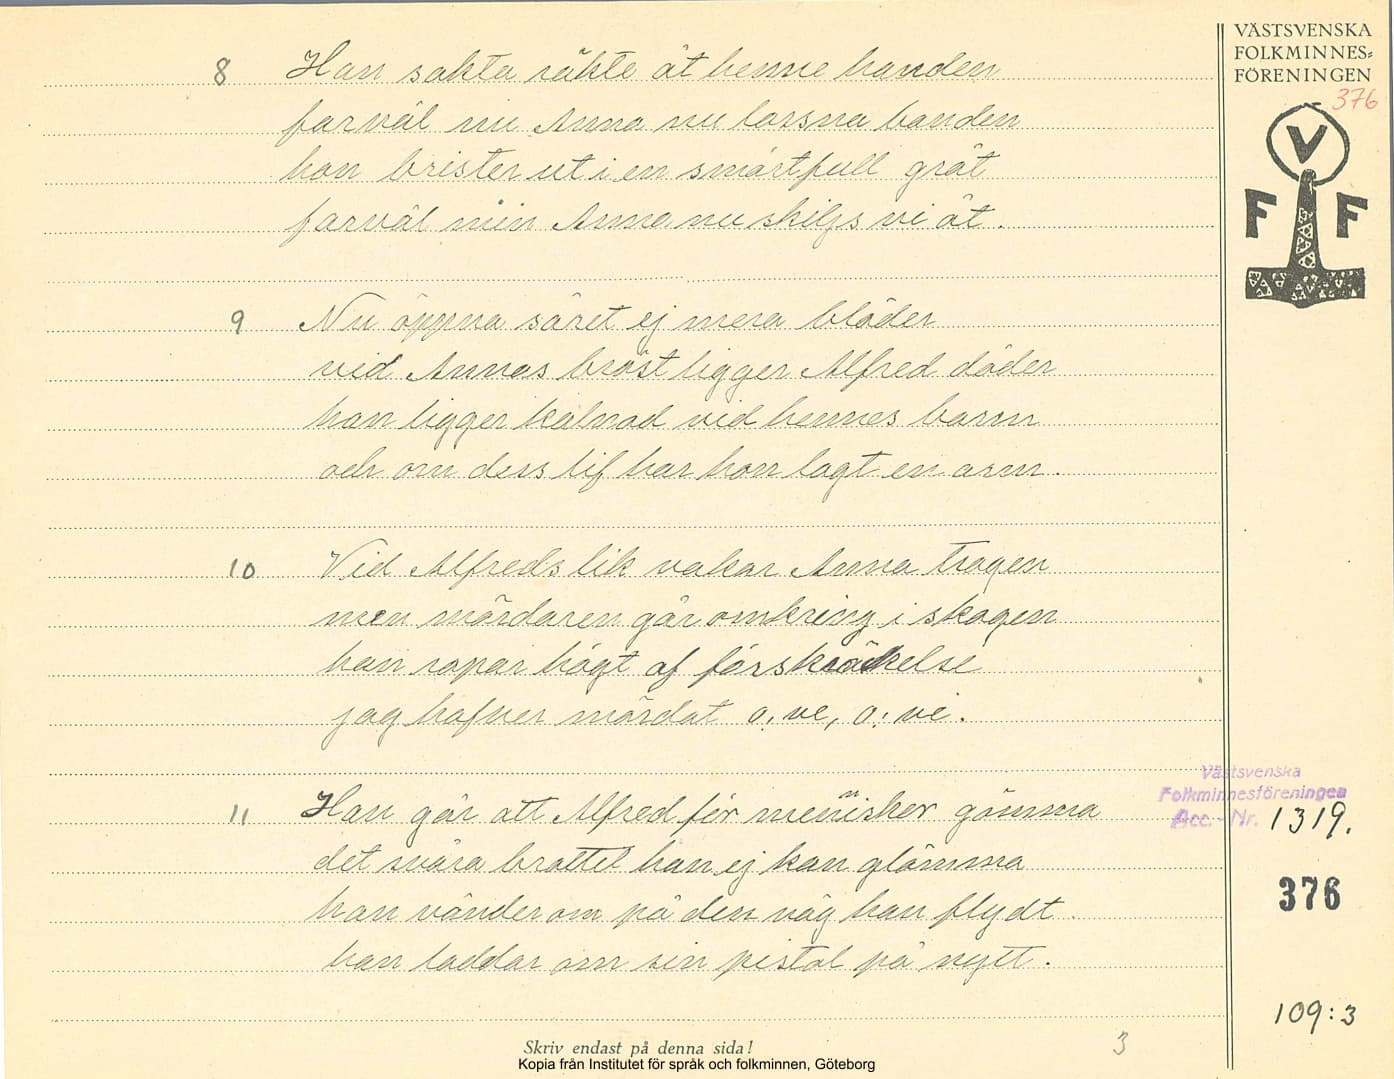 VÄSTSVENSKA
FOLKMINNES=
FÖRENINGEN
376
V
F F
8 Han sakta räkte åt henne handen
farväl nu Anna nu lossna banden
hon brister ut i en smärtfull gråt
farväl min Anna nu skiljs vi åt.
9 Nu öppna såret ej mera blöder
vid Annas bröst ligger Alfred döder
han ligger kalnad vid hennes barm
och om dess lif har hon lagt en arm.
10 Vid Alfreds lik vakar Anna trogen
men mördaren går omkring i skogen
han ropar högt af förskräckelse
jag hafver mördat o; ve, o; ve.
11 Han går att Alfred för menniskor gömma
det svåra brottet han ej kan glömma
han vänder om på den väg han flydt.
han laddar om sin pistol på nytt.
Västsvenska
Folkminnesföreningen
Acc.-Nr. 1319.
376
109:3
3
Skriv endast på denna sida!
Kopia från Institutet för språk och folkminnen, Göteborg